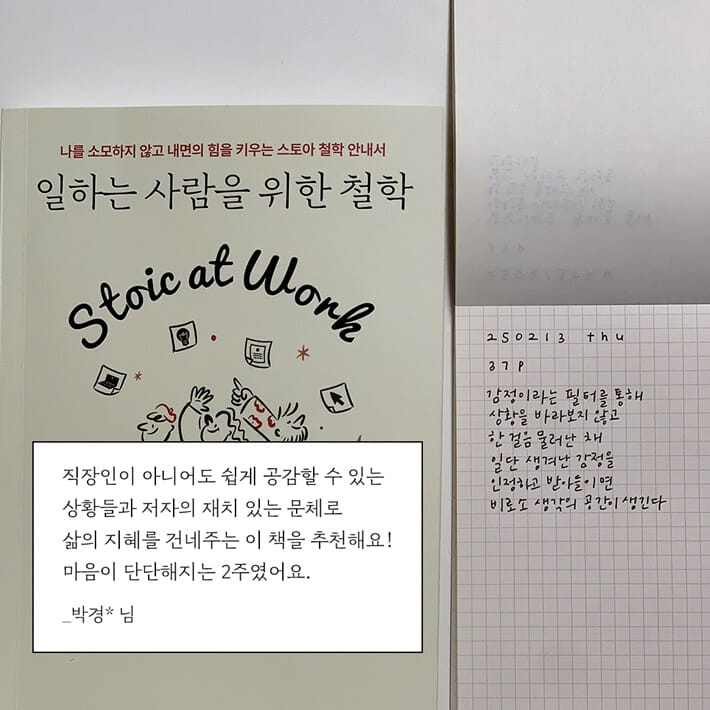 나를 소모하지 않고 내면의 힘을 키우는 스토아 철학 안내서
일하는 사람을 위한 철학
Stoic at Work
직장인이 아니어도 쉽게 공감할 수 있는
상황들과 저자의 재치 있는 문체로
삶의 지혜를 건네주는 이 책을 추천해요!
마음이 단단해지는 2주였어요.
_박경* 님
250213 thu
37p
감정이라는 필터를 통해
상황을 바라보지 않고
한 걸음 물러난 채
일단 생겨난 감정을
인정하고 받아들이면
비로소 생각의 공간이 생긴다